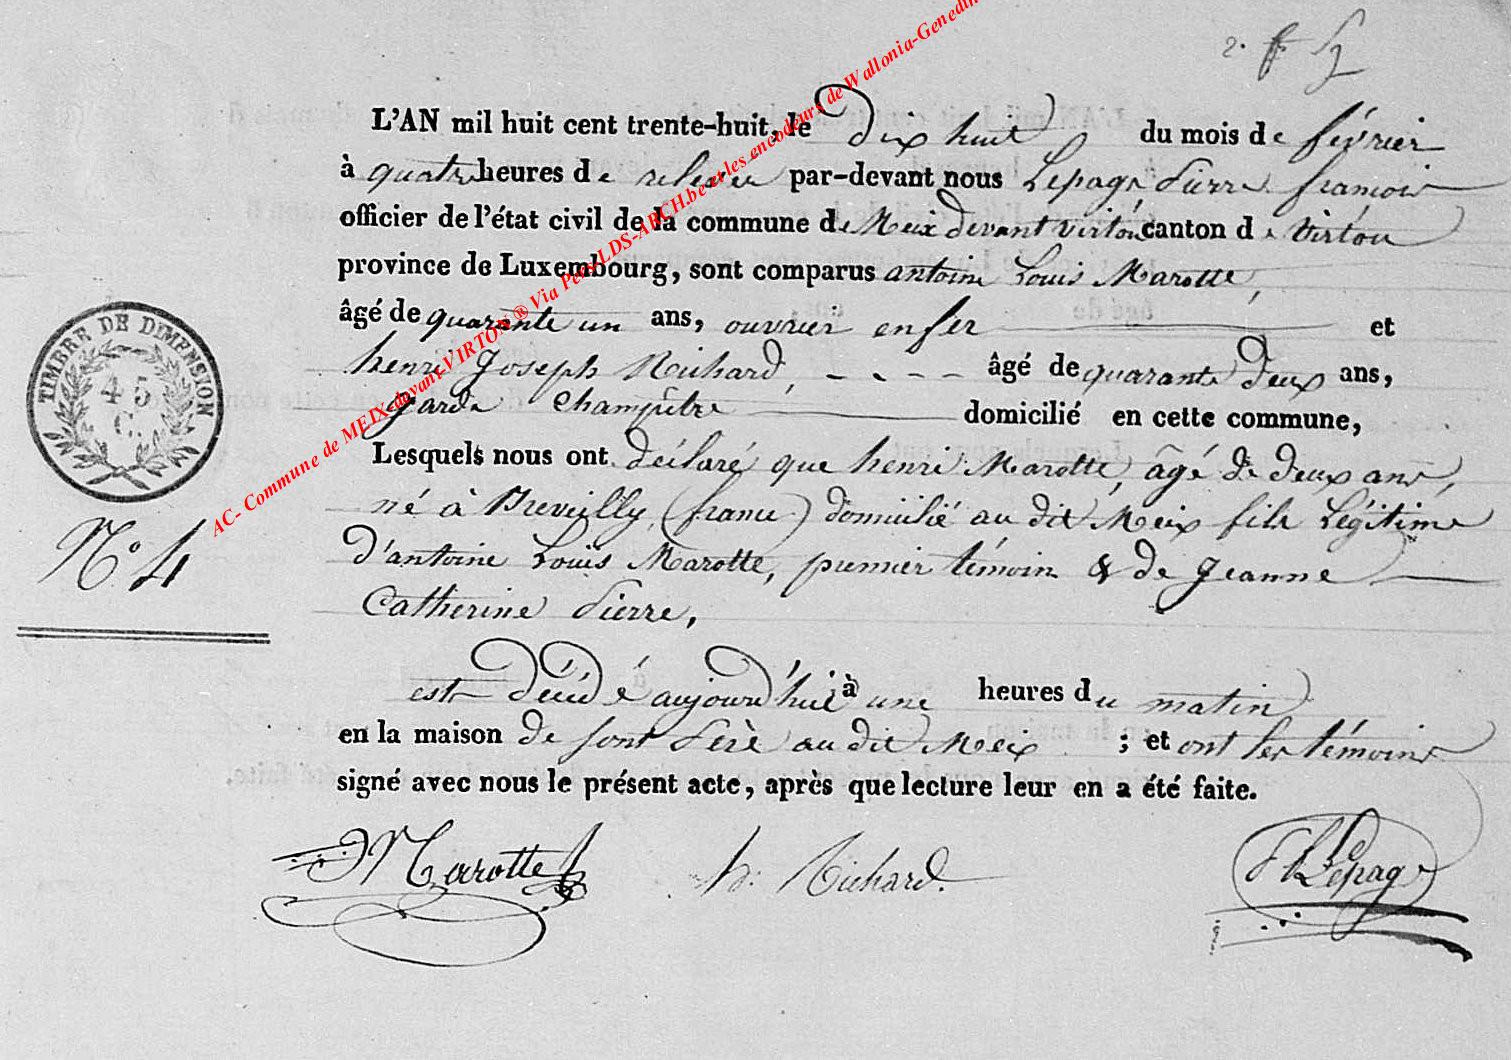 2. f
L'AN mil huit cent trente-huit, le Dix huit du mois de février
à quatre heures de relevée par-devant nous Lepage Pierre françois
officier de l'état civil de la commune de Meix devant virton canton de virton
province de Luxembourg, sont comparus antoine Louis Marotte,
âgé de quarante un ans, ouvrier en fer et
henri Joseph Richard, - - - - âgé de quarante Deux ans,
garde Champêtre domicilié en cette commune,
Lesquels nous ont déclaré que henri Marotte, âgé de deux ans,
né à Breveilly, (france) domicilié au dit Meix fils Légitime
D'antoine Louis Marotte, premier témoin & de Jeanne
Catherine Pierre,
est Décédé aujourd'hui à une heures du matin
en la maison de sont Père au dit Meix ; et ont les témoins
signé avec nous le présent acte, après que lecture leur en a été faite.
Marotte h. Richard. P F Lepage
TIMBRE DE DIMENSION
45
C.
N° 4
AC- Commune de MEIX-devant-VIRTON ® Via Pers LDS-ARCH.be et les encodeurs de Wallonia-Genedin